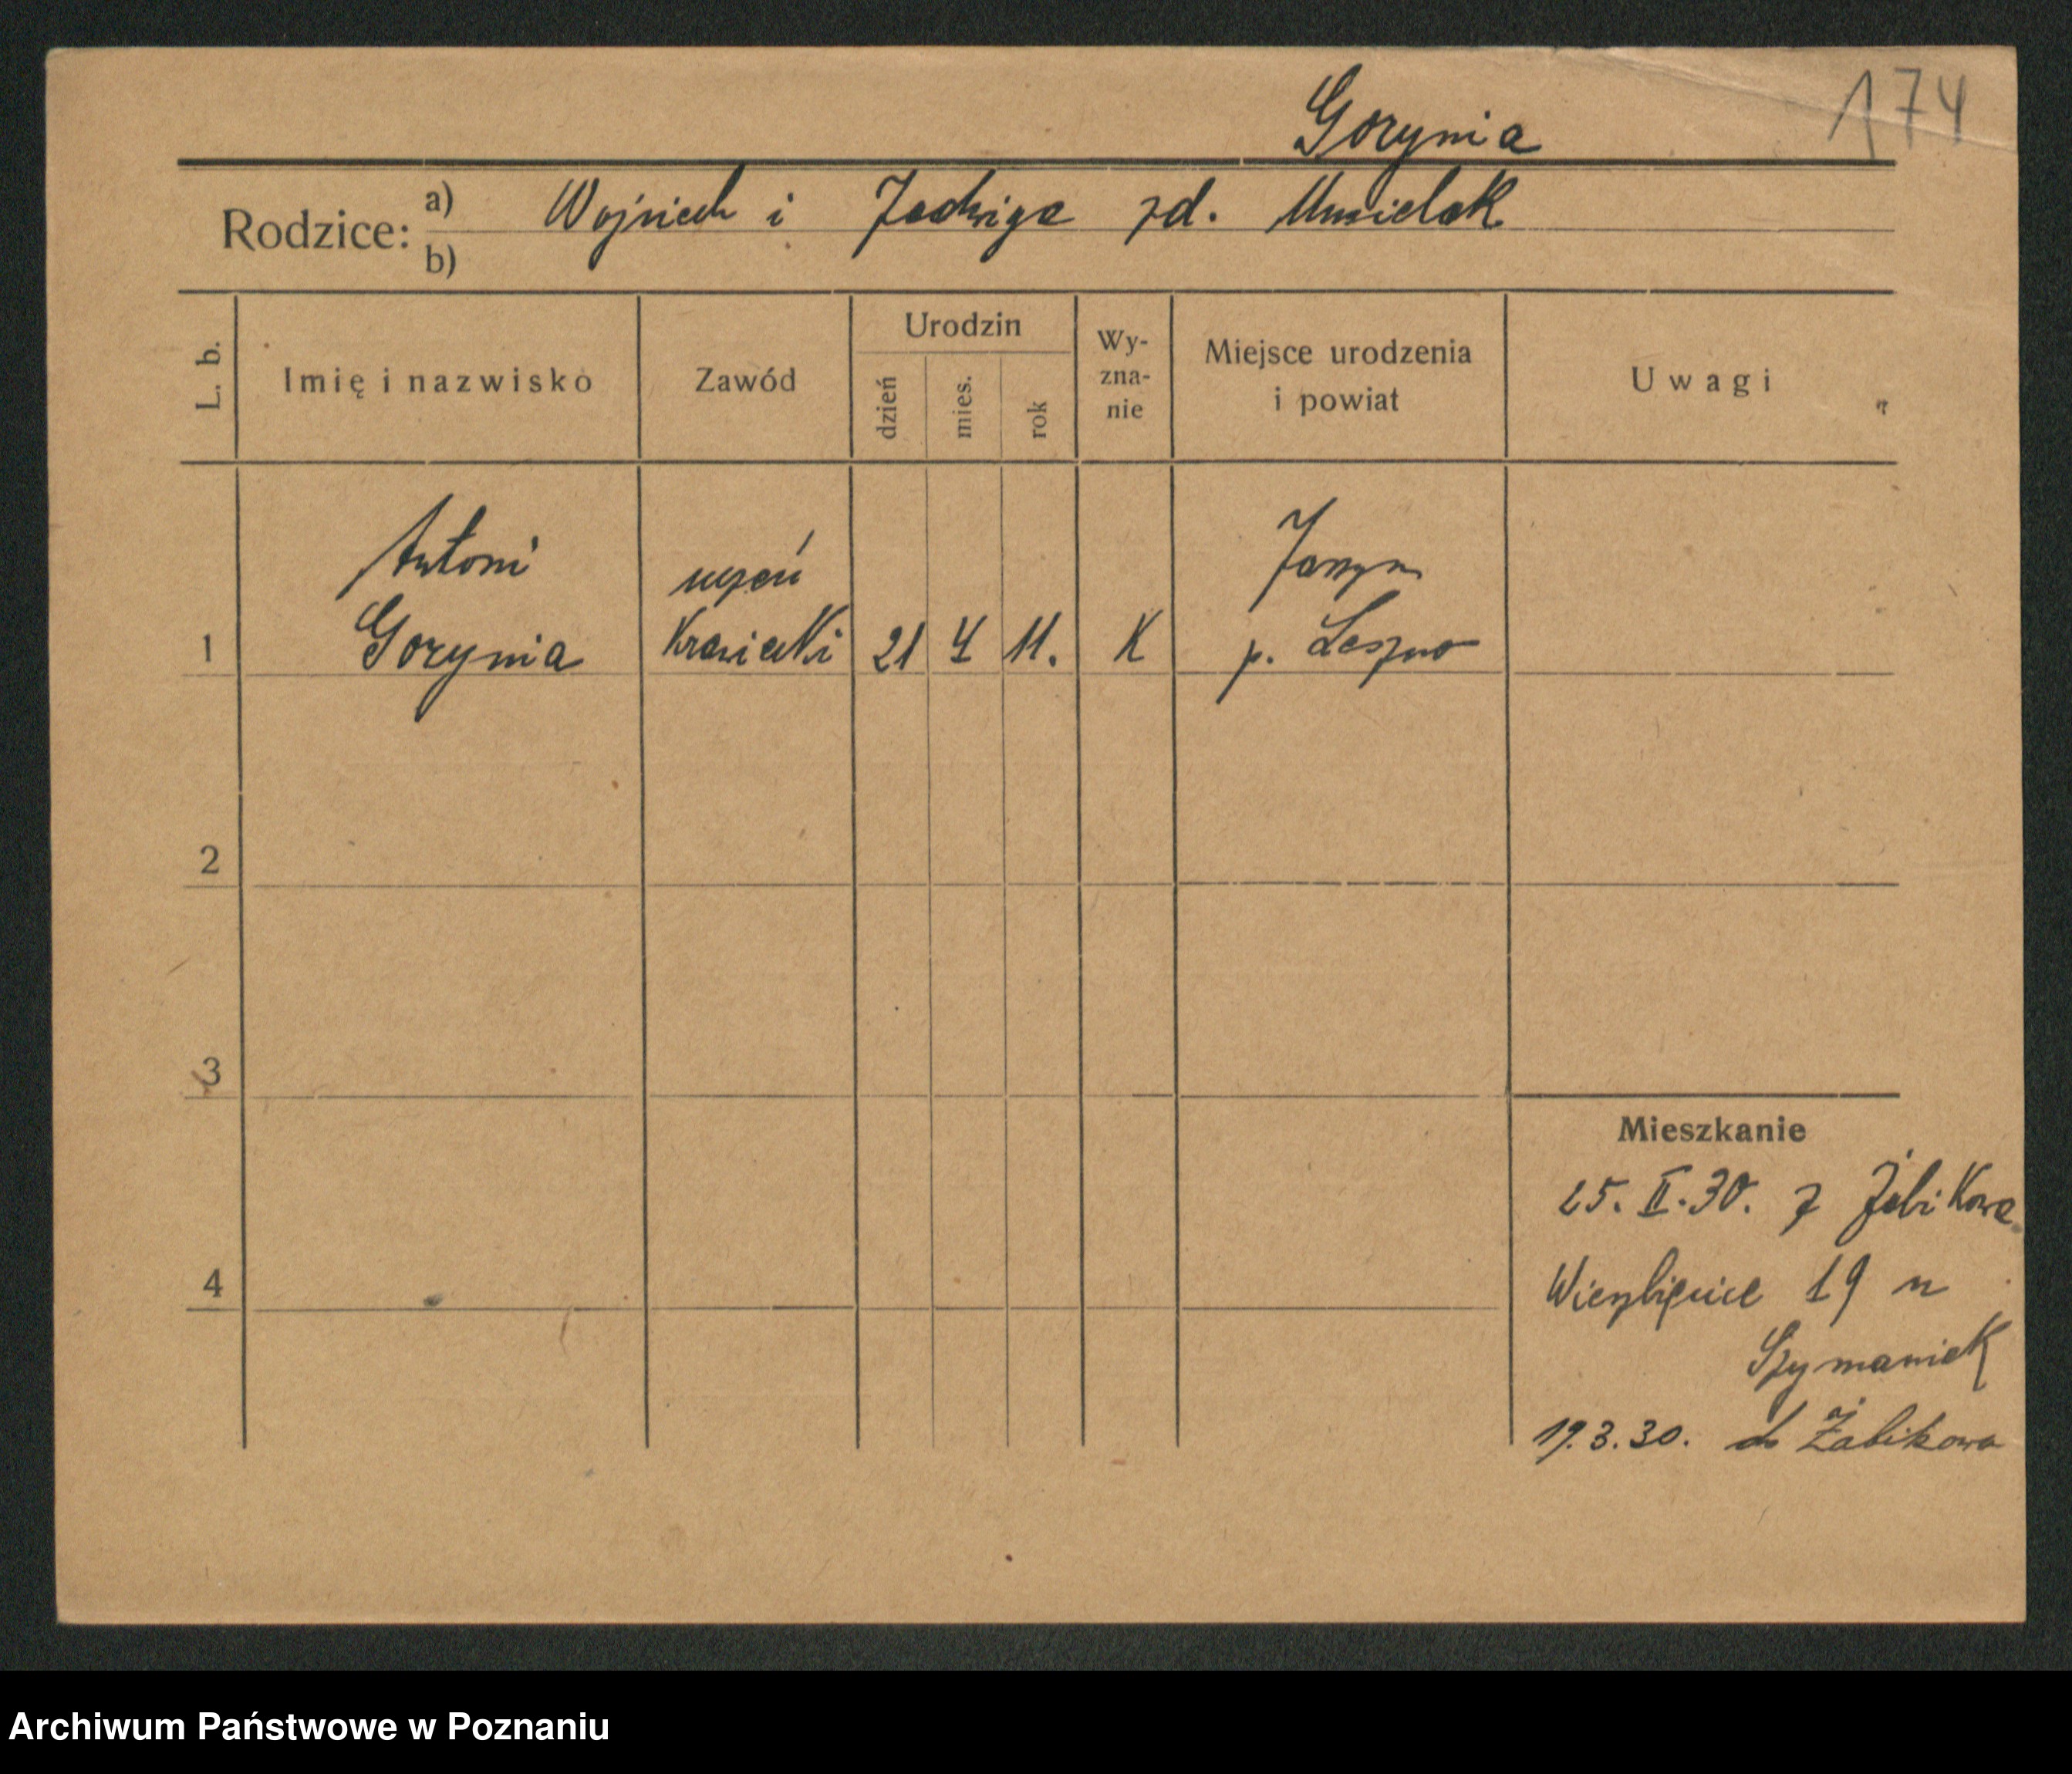 Gorynia
174
Rodzice: a) Wojciech i Jadwiga zd. Musielak
b)
L. b.
Imię i nazwisko
Zawód
Urodzin
dzień
mies.
rok
Wy-
zna-
nie
Miejsce urodzenia
i powiat
Uwagi
Antoni
uczeń
1 Gorynia krawiecki 21 4 11. K p. Leszno
2
3
4
Mieszkanie
25. II. 30. z Żabikowa
Wierzbięcice 19 u
Szymaniak
19. 3. 30. do Żabikowa
Archiwum Państwowe w Poznaniu